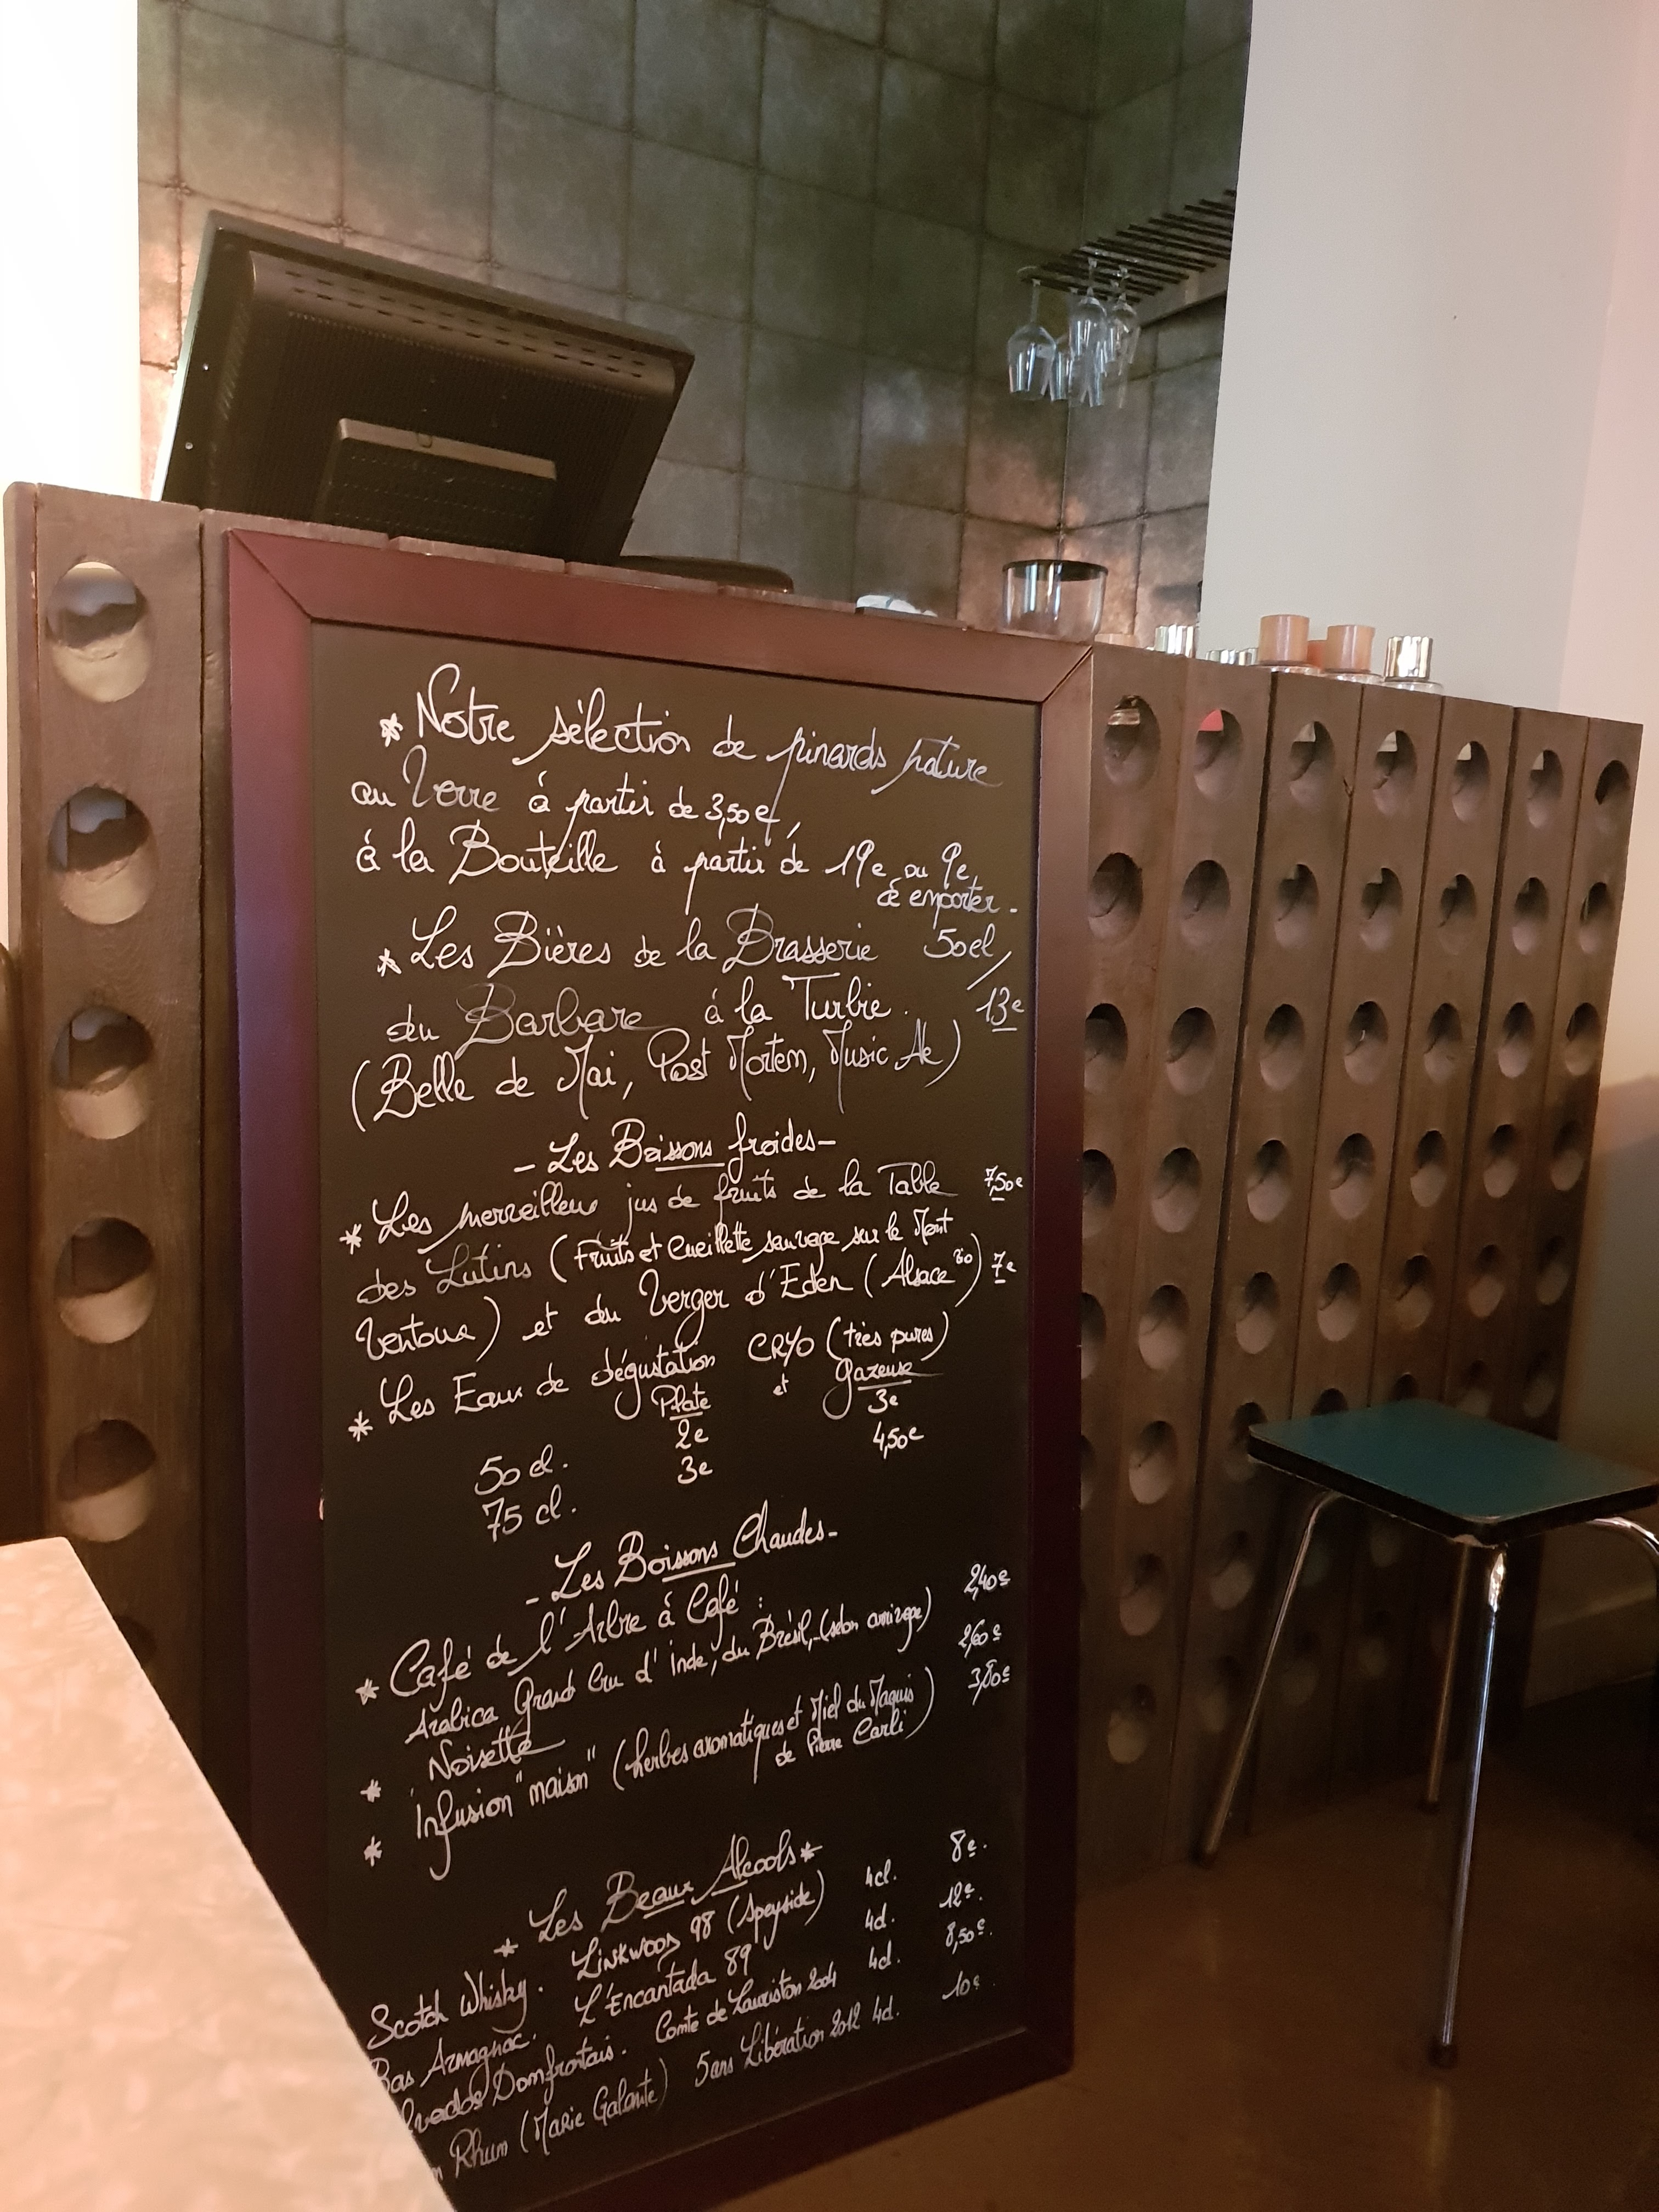 * Notre sélection de pinards nature
au Verre à partir de 3,50 e,
à la Bouteille à partir de 19e ou 9e
à emporter.
* Les Bières de la Brasserie 50cl /
du Barbare à la Turbie. 13e
(Belle de Mai, Post Mortem, Music Ale)
- Les Boissons froides -
* Les merveilleux jus de fruits de la Table 7,50e
des Lutins (Fruits et Cueillette sauvage sur le Mont
Ventoux) et du Verger d'Eden (Alsace bio) 7e
* Les Eaux de dégustation CRYO (très pures)
Plate et gazeuse
50 cl. 2e 3e
75 cl. 3e 4,50e
- Les Boissons Chaudes -
* Café de l'Arbre à Café :
Arabica Grand Cru d'Inde, du Brésil, (selon arrivage) 2,40e
* Noisette 2,60e
* Infusion "maison" (herbes aromatiques et Miel du Maquis 3,80e
de Pierre Carli)
* Les Beaux Alcools *
Scotch Whisky. LINKWOOD 98 (Speyside) 4cl. 8e.
Bas Armagnac. L'Encantada 89 4cl. 12e.
Domfrontais. Comte de Lauriston 2004 4cl. 8,50e.
Rhum (Marie Galante) 5ans Libération 2012 4cl. 10e.